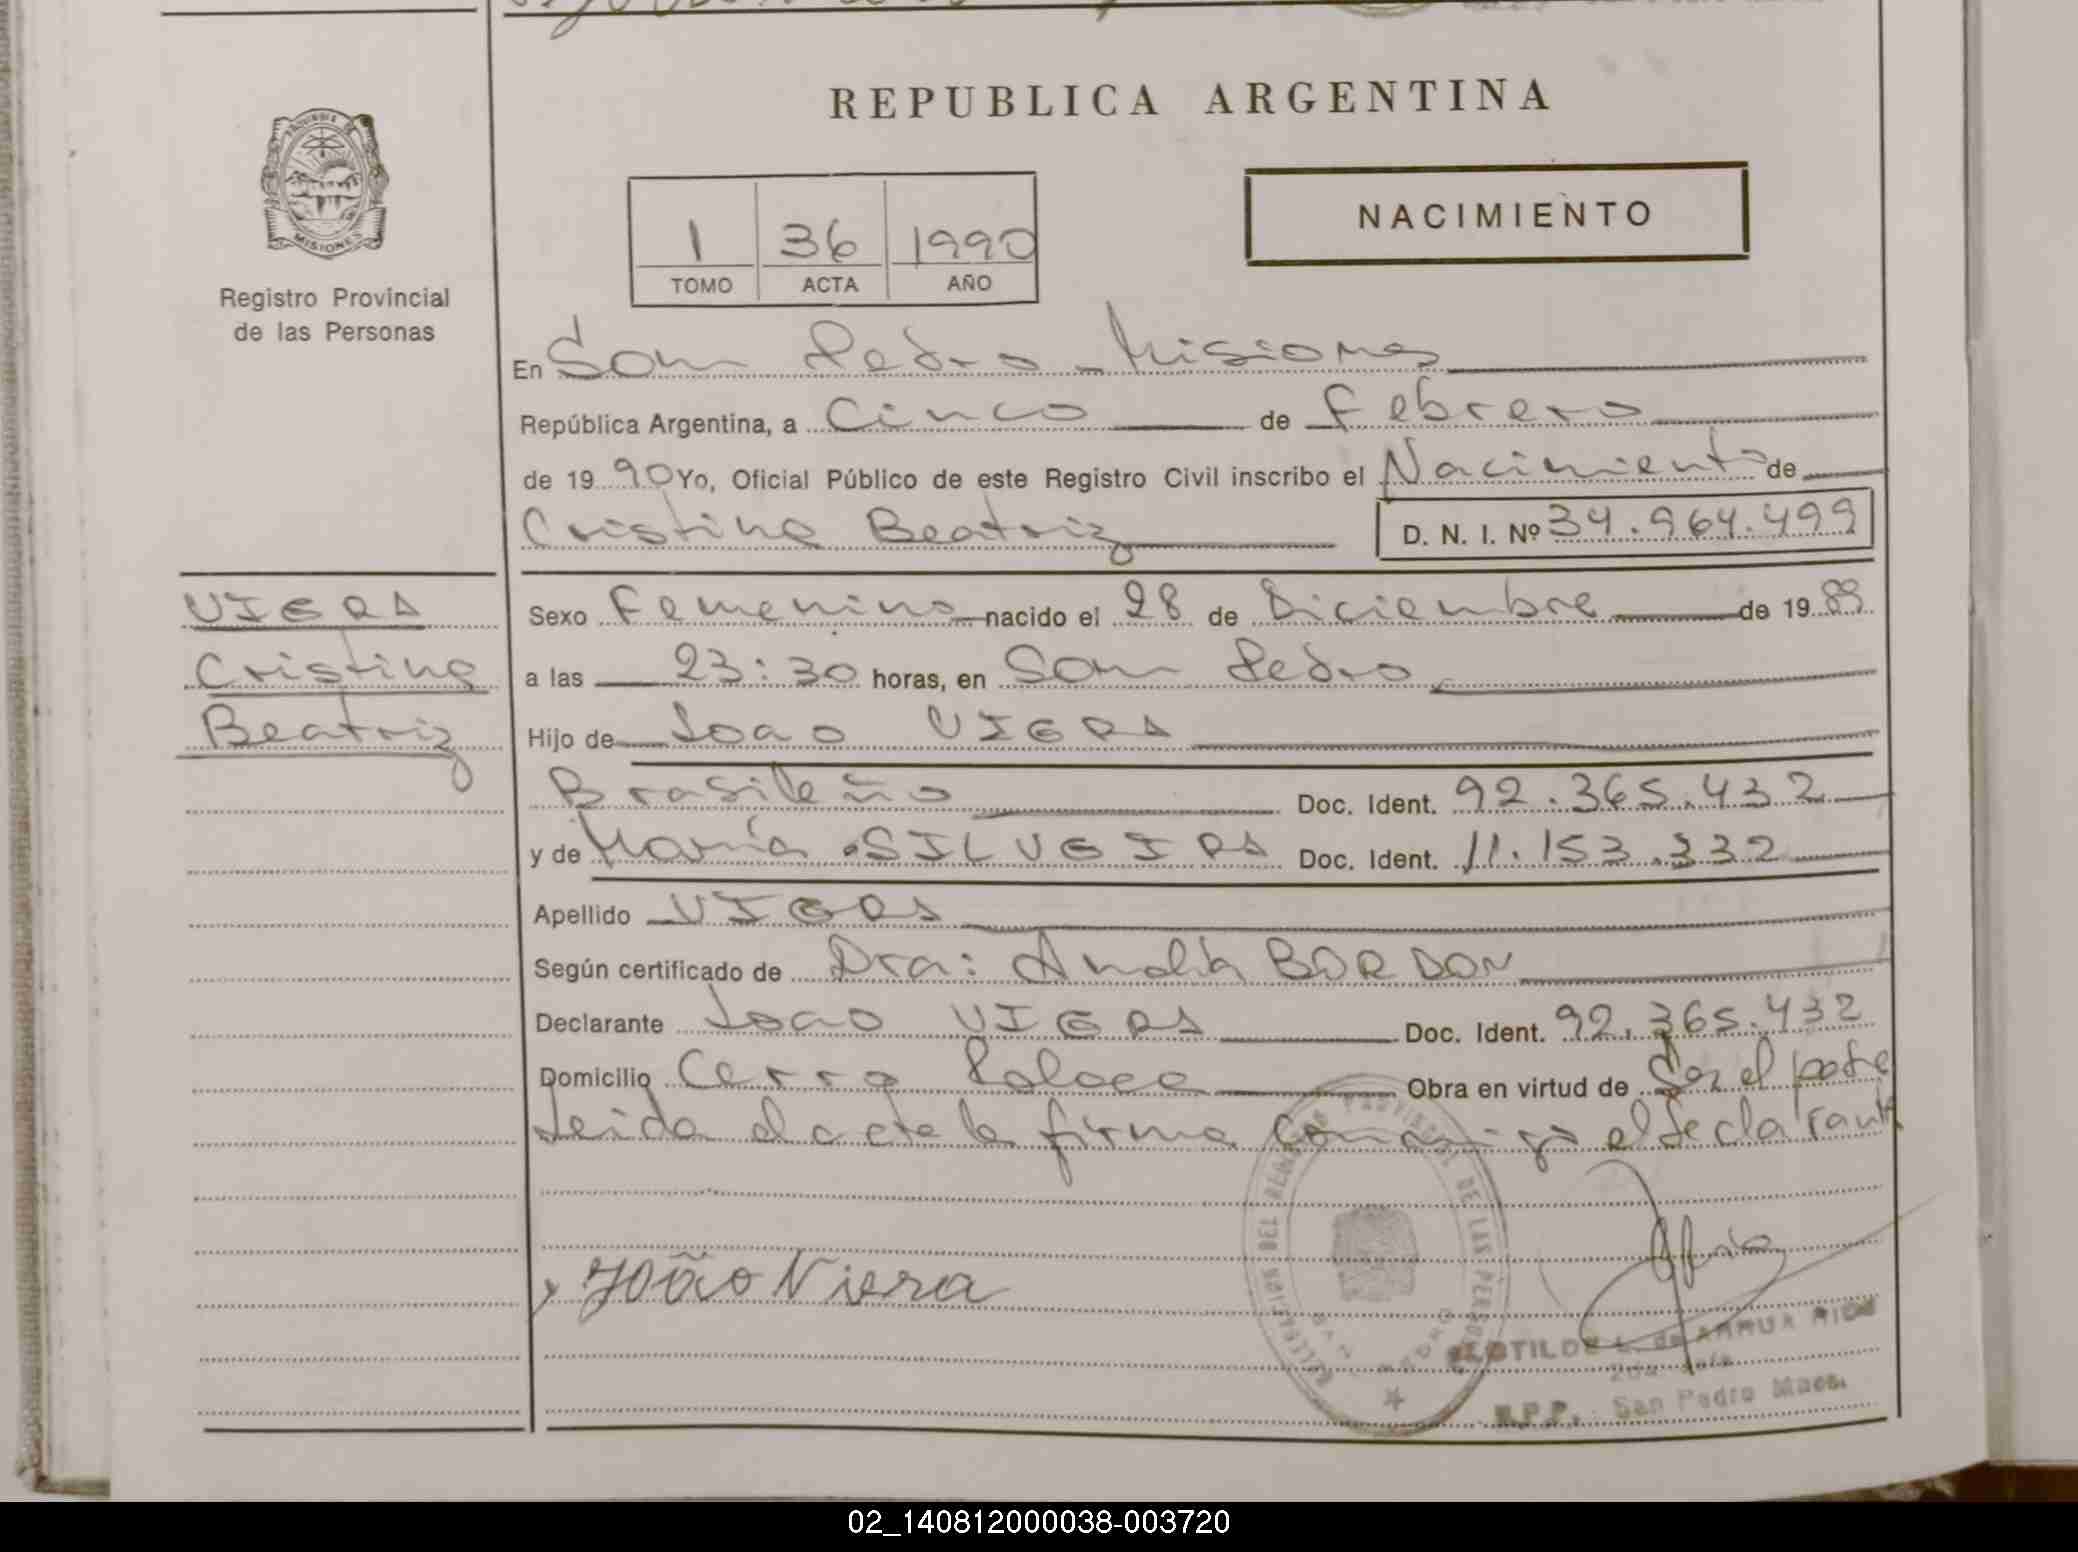 REPUBLICA ARGENTINA
PROVINCIA DE
MISIONES
Registro Provincial
de las Personas
NACIMIENTO
1 36 1990
TOMO ACTA AÑO
En San Pedro - Misiones
República Argentina, a Cinco de Febrero
de 19 90 Yo, Oficial Público de este Registro Civil inscribo el Nacimiento de
Cristina Beatriz D. N. I. Nº 34.964.499
VIERA
Cristina
Beatriz
Sexo Femenino nacido el 28 de Diciembre de 19 89
a las 23:30 horas, en San Pedro
Hijo de Joao VIERA
Brasileño Doc. Ident. 92.365.432
y de María SILVEIRA Doc. Ident. 11.153.332
Apellido VIERA
Según certificado de Dra: Analía BORDON
Declarante Joao VIERA Doc. Ident. 92.365.432
Domicilio Cerro Obra en virtud de Ser el padre
Leida el acta la firma conmigo el declarante
João Viera
DEL REGISTRO PROVINCIAL DE LAS PERSONAS
SAN PEDRO
CLOTILDE L. de ARRUA RIOS
2da. Jefa
R.P.P. San Pedro Mnes.
02_140812000038-003720